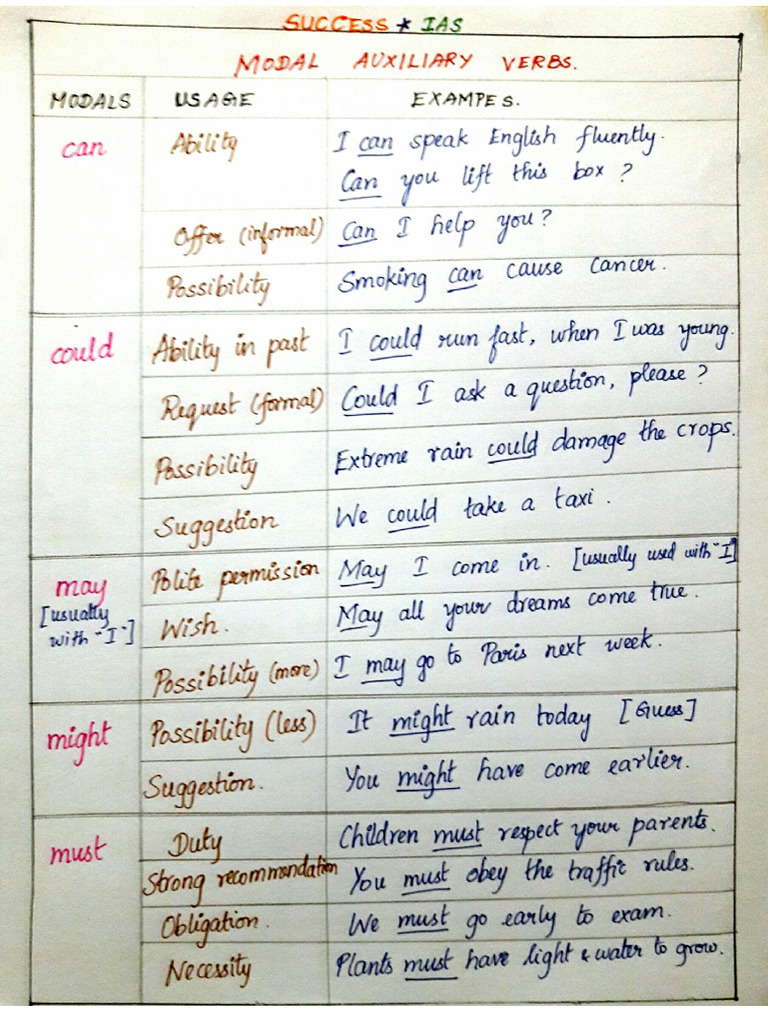 SUCCESS * IAS
MODAL AUXILIARY VERBS.
MODALS USAGE EXAMPES.
can Ability I can speak English fluently.
Can you lift this box ?
Offer (informal) Can I help you?
Possibility Smoking can cause cancer.
could Ability in past I could run fast, when I was young.
Request (formal) Could I ask a question, please ?
Possibility Extreme rain could damage the crops.
Suggestion We could take a taxi .
may Polite permission May I come in. [usually used with "I]
[usually
with "I"] Wish. May all your dreams come true.
Possibility (more) I may go to Paris next week.
might Possibility (less) It might rain today [Guess]
Suggestion. You might have come earlier.
must Duty Children must respect your parents.
Strong recommendation You must obey the traffic rules.
Obligation. We must go early to exam.
Necessity Plants must have light & water to grow.